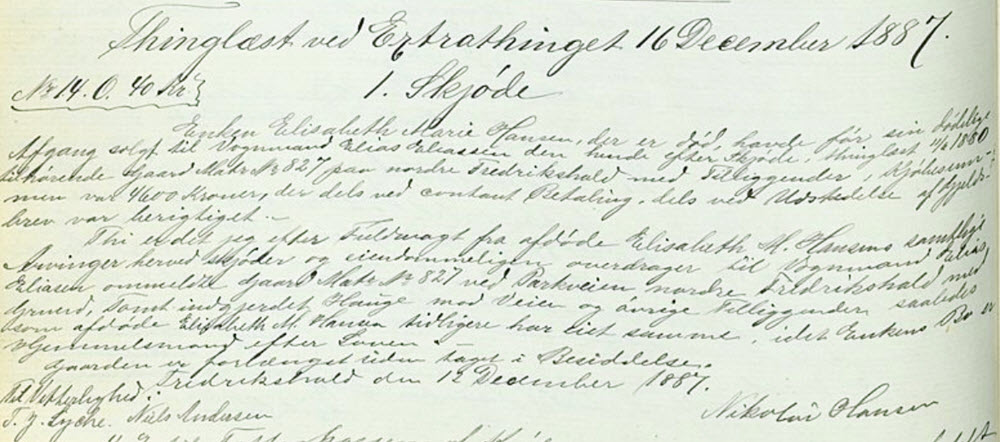 Thinglæst ved Extrathinget 16 December 1887.
No 14. O. 40 Kr
1. Skjøde
Enken Elisabeth Marie Hansen, der er død, havde før sin dødelige
Afgang solgt til Vognmand Elias Eliassen den hende efter Skjøde, thinglæst 11/6 1880
tilhørende Gaard Matr No 827 paa nordre Fredrikshald med Tilliggender, Kjøbesum-
men var 4600 Kroner, der dels ved contant Betaling, dels ved Udstedelse af Gjælds-
brev var berigtiget.-
Thi er det jeg efter Fuldmagt fra afdøde Elisabeth M. Hansens samtlige
Arvinger herved skjøder og eiendommeligen overdrager til Vognmand Elias
Eliasen ommeldte Gaard Matr No 827 ved Parkveien nordre Fredrikshald med
Grund, Tomt indgjerdet Hauge mod Veien og øvrige Tilliggender saaledes
som afdøde Elisabeth M. Hansen tidligere har eiet samme, idet Enkens Bo er
Hjemmelsmand efter Loven
Gaarden er forlænget siden taget i Besiddelse.
Fredrikshald den 12 December 1887.
Til Vitterlighed:
T. J. Lyche. Niels Andersen
Nikolai Hansen